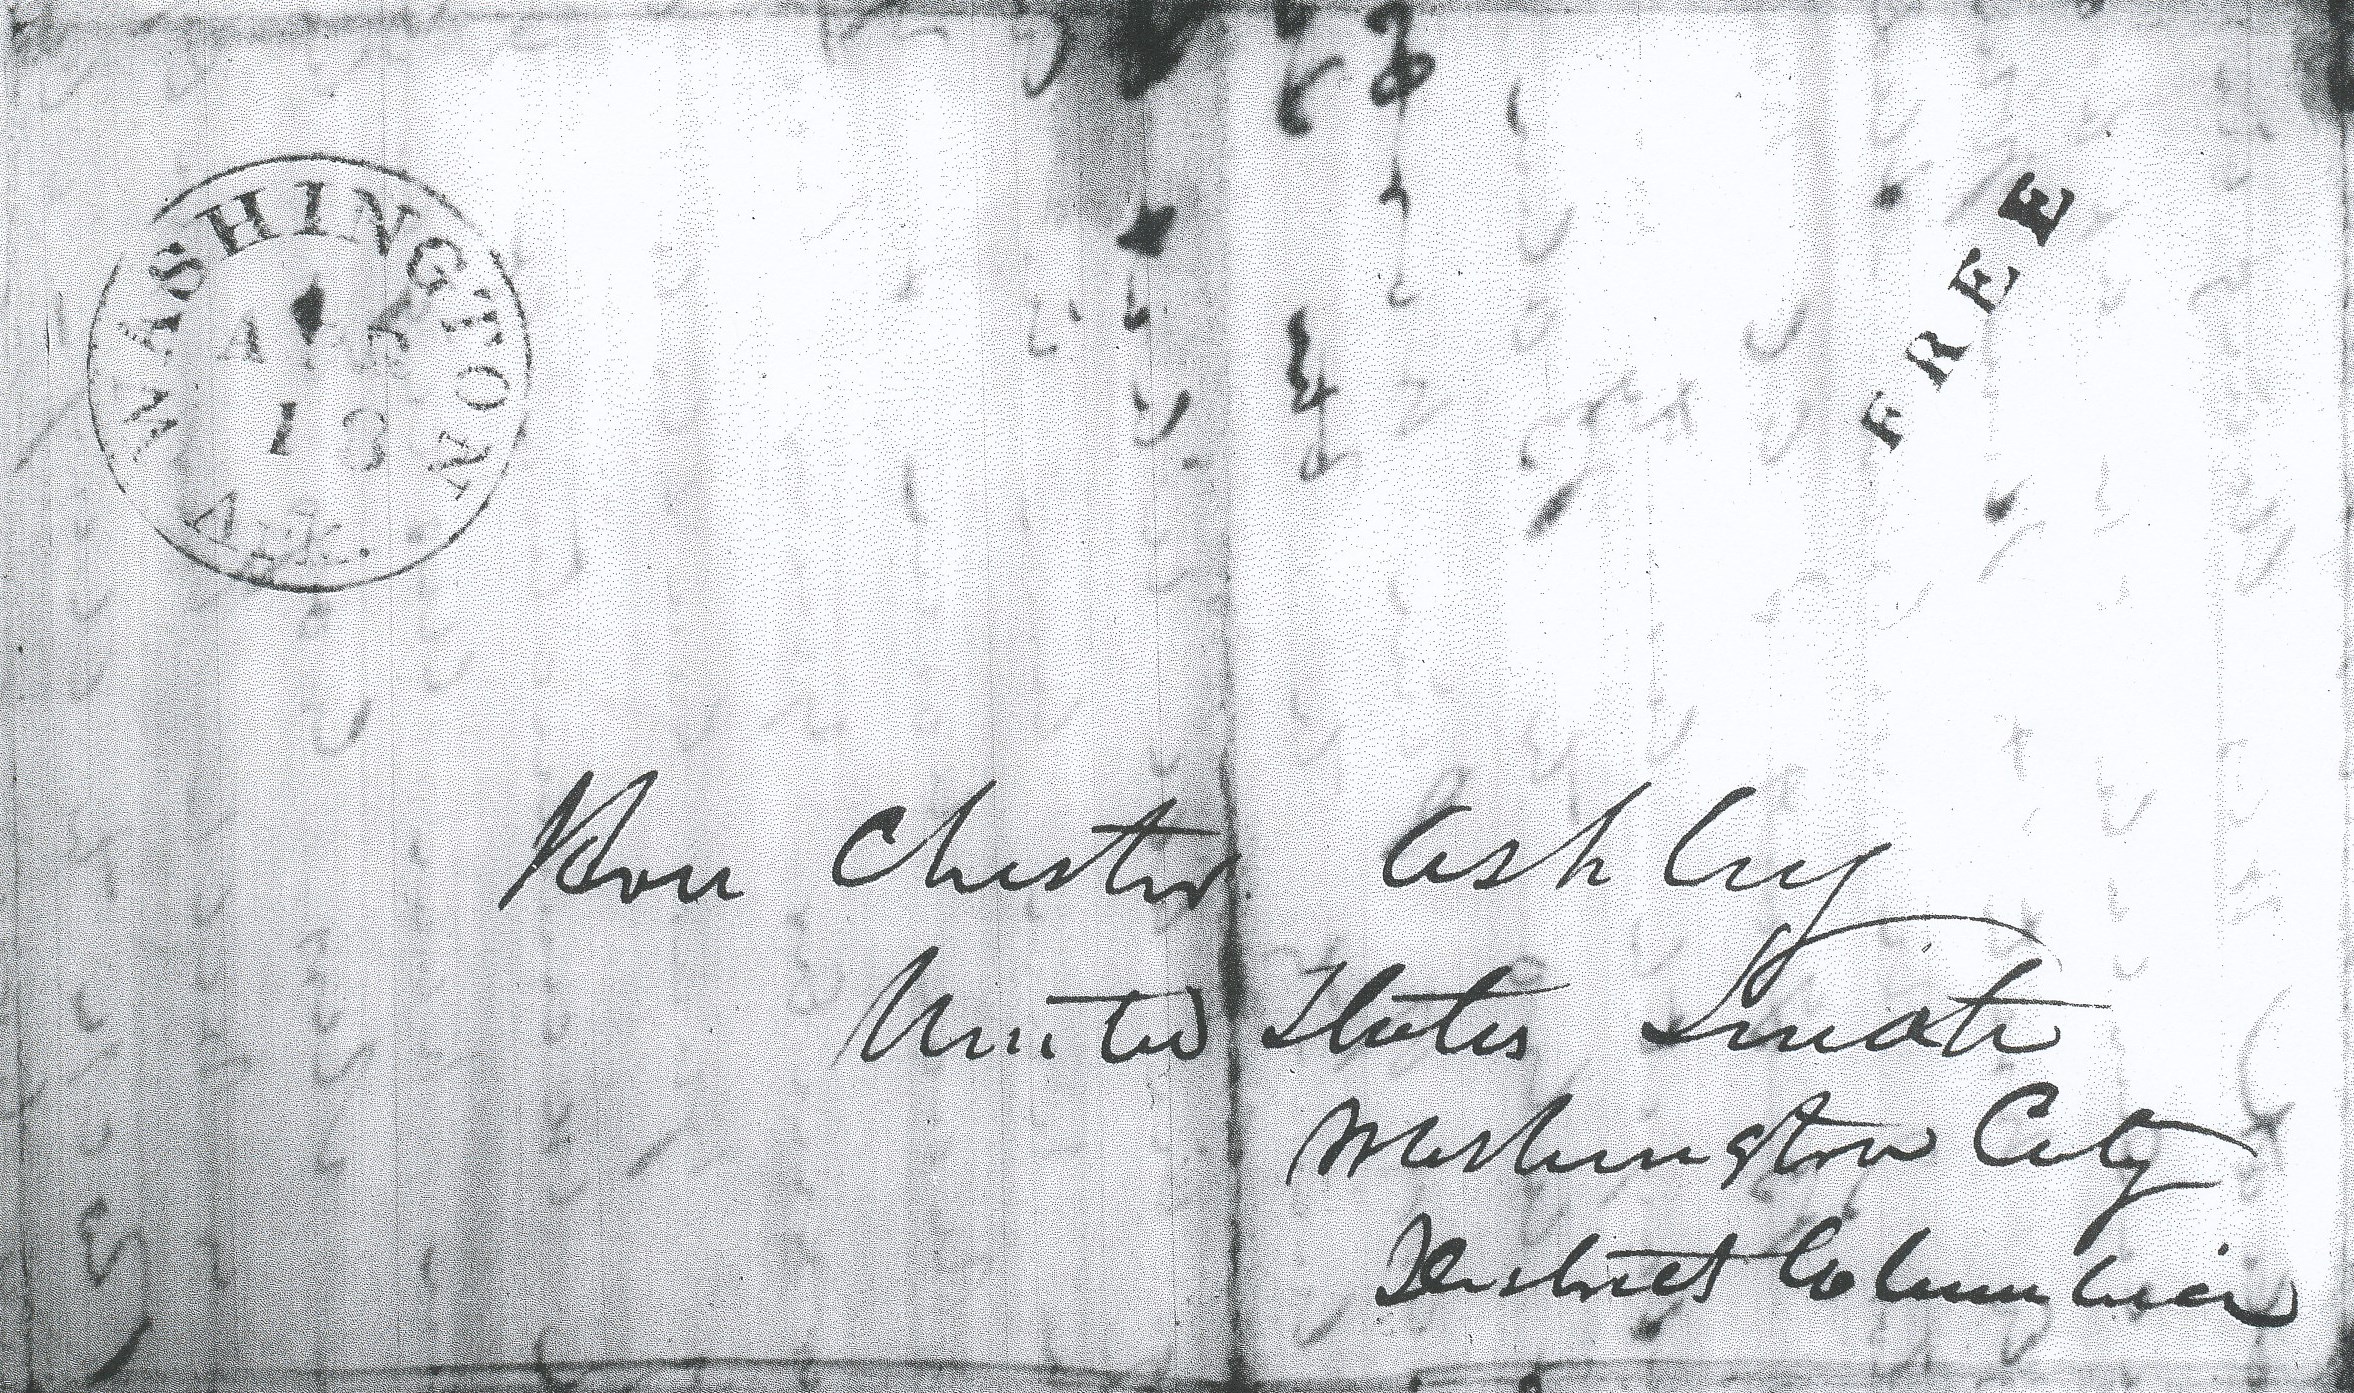 WASHINGTON
APR
13
Ark.
FREE
Hon Chester Ashley
United States Senate
Washington City
District Columbia